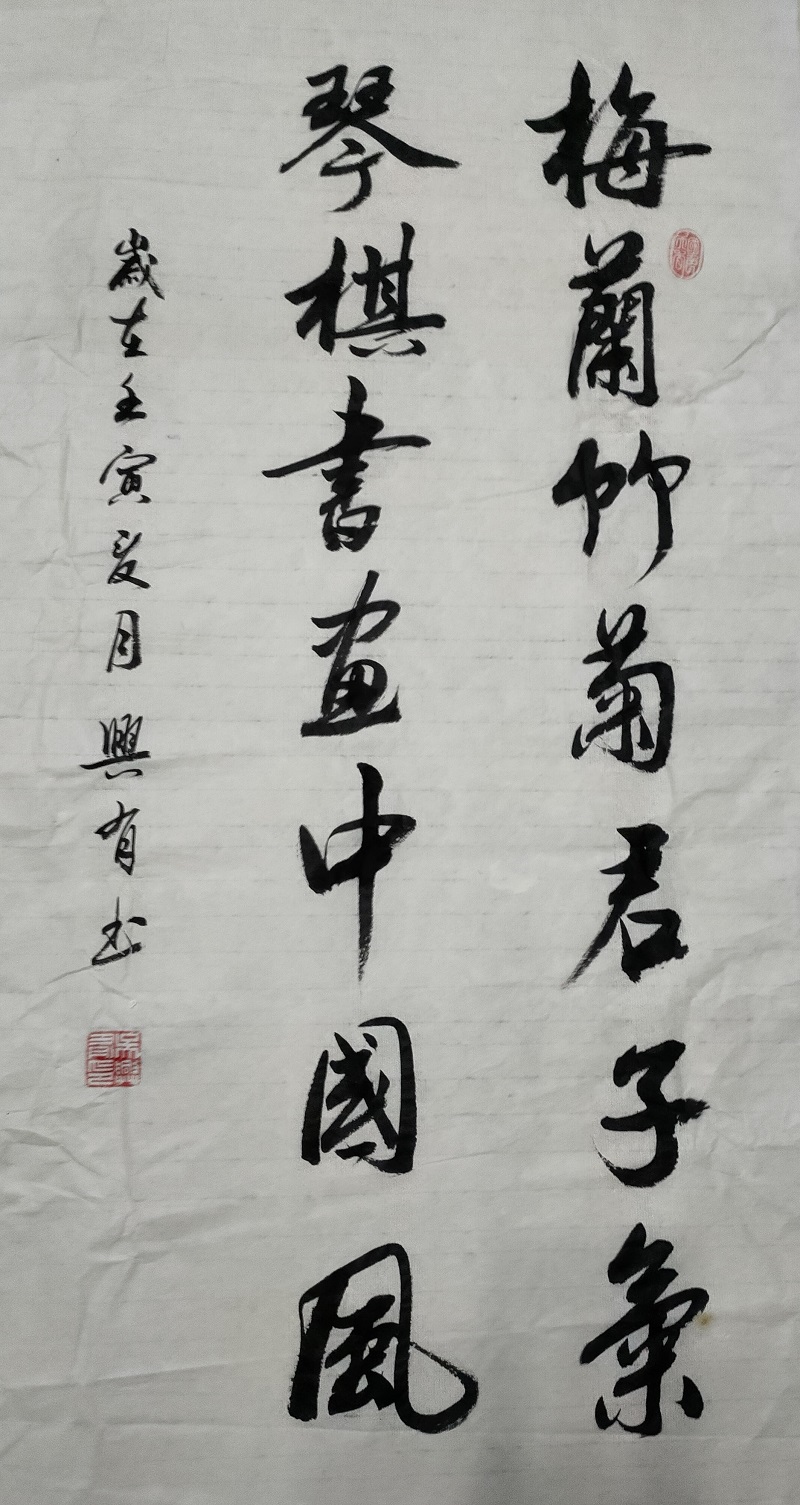 梅蘭竹菊君子氣
琴棋書畫中國風
歲在壬寅夏月興有书